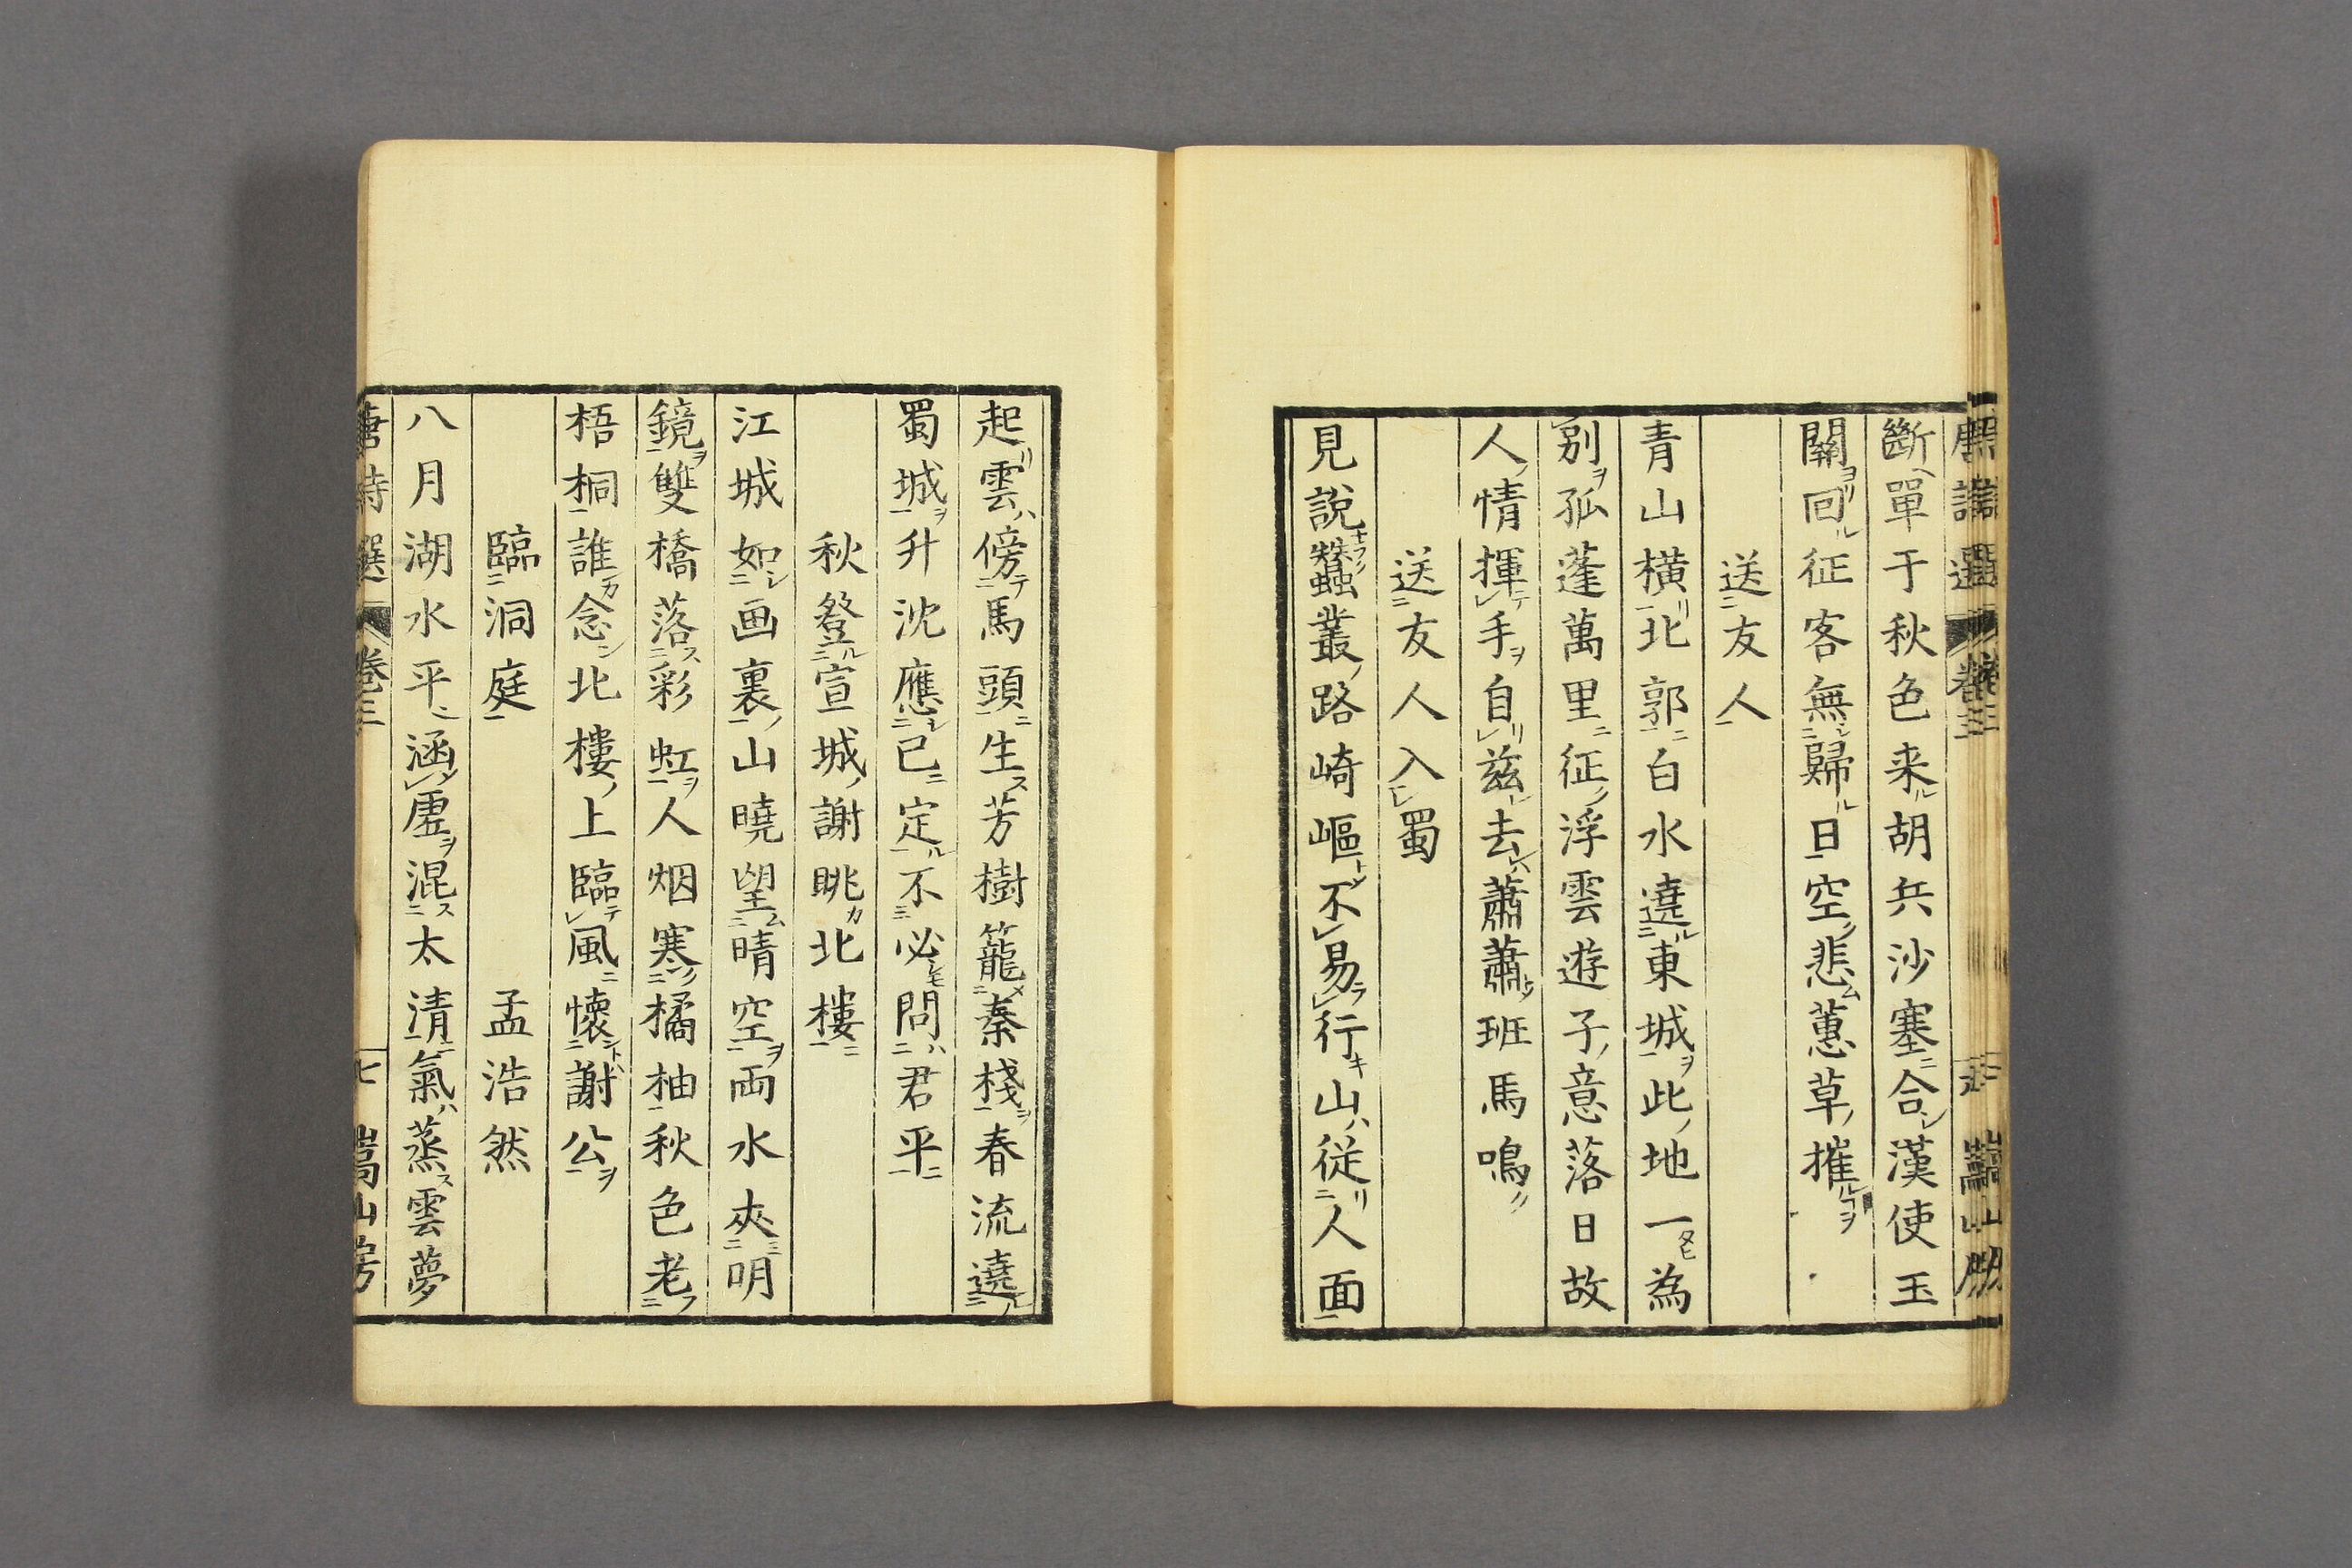 斷單于秋色来胡兵沙塞合漢使玉
關回征客無歸日空悲蕙草摧
送友人
青山横北郭白水遶東城此地一為
別孤蓬萬里征浮雲遊子意落日故
人情揮手自茲去蕭蕭班馬鳴
送友人入蜀
見說蠶叢路崎嶇不易行山從人面
起雲傍馬頭生芳樹籠秦棧春流遶
蜀城升沈應已定不必問君平
秋登宣城謝眺北樓
江城如画裏山曉望晴空両水夾明
鏡雙橋落彩虹人烟寒橘柚秋色老
梧桐誰念北樓上臨風懷謝公
臨洞庭 孟浩然
八月湖水平涵虛混太清氣蒸雲夢
唐詩選 卷三 七 嵩山房